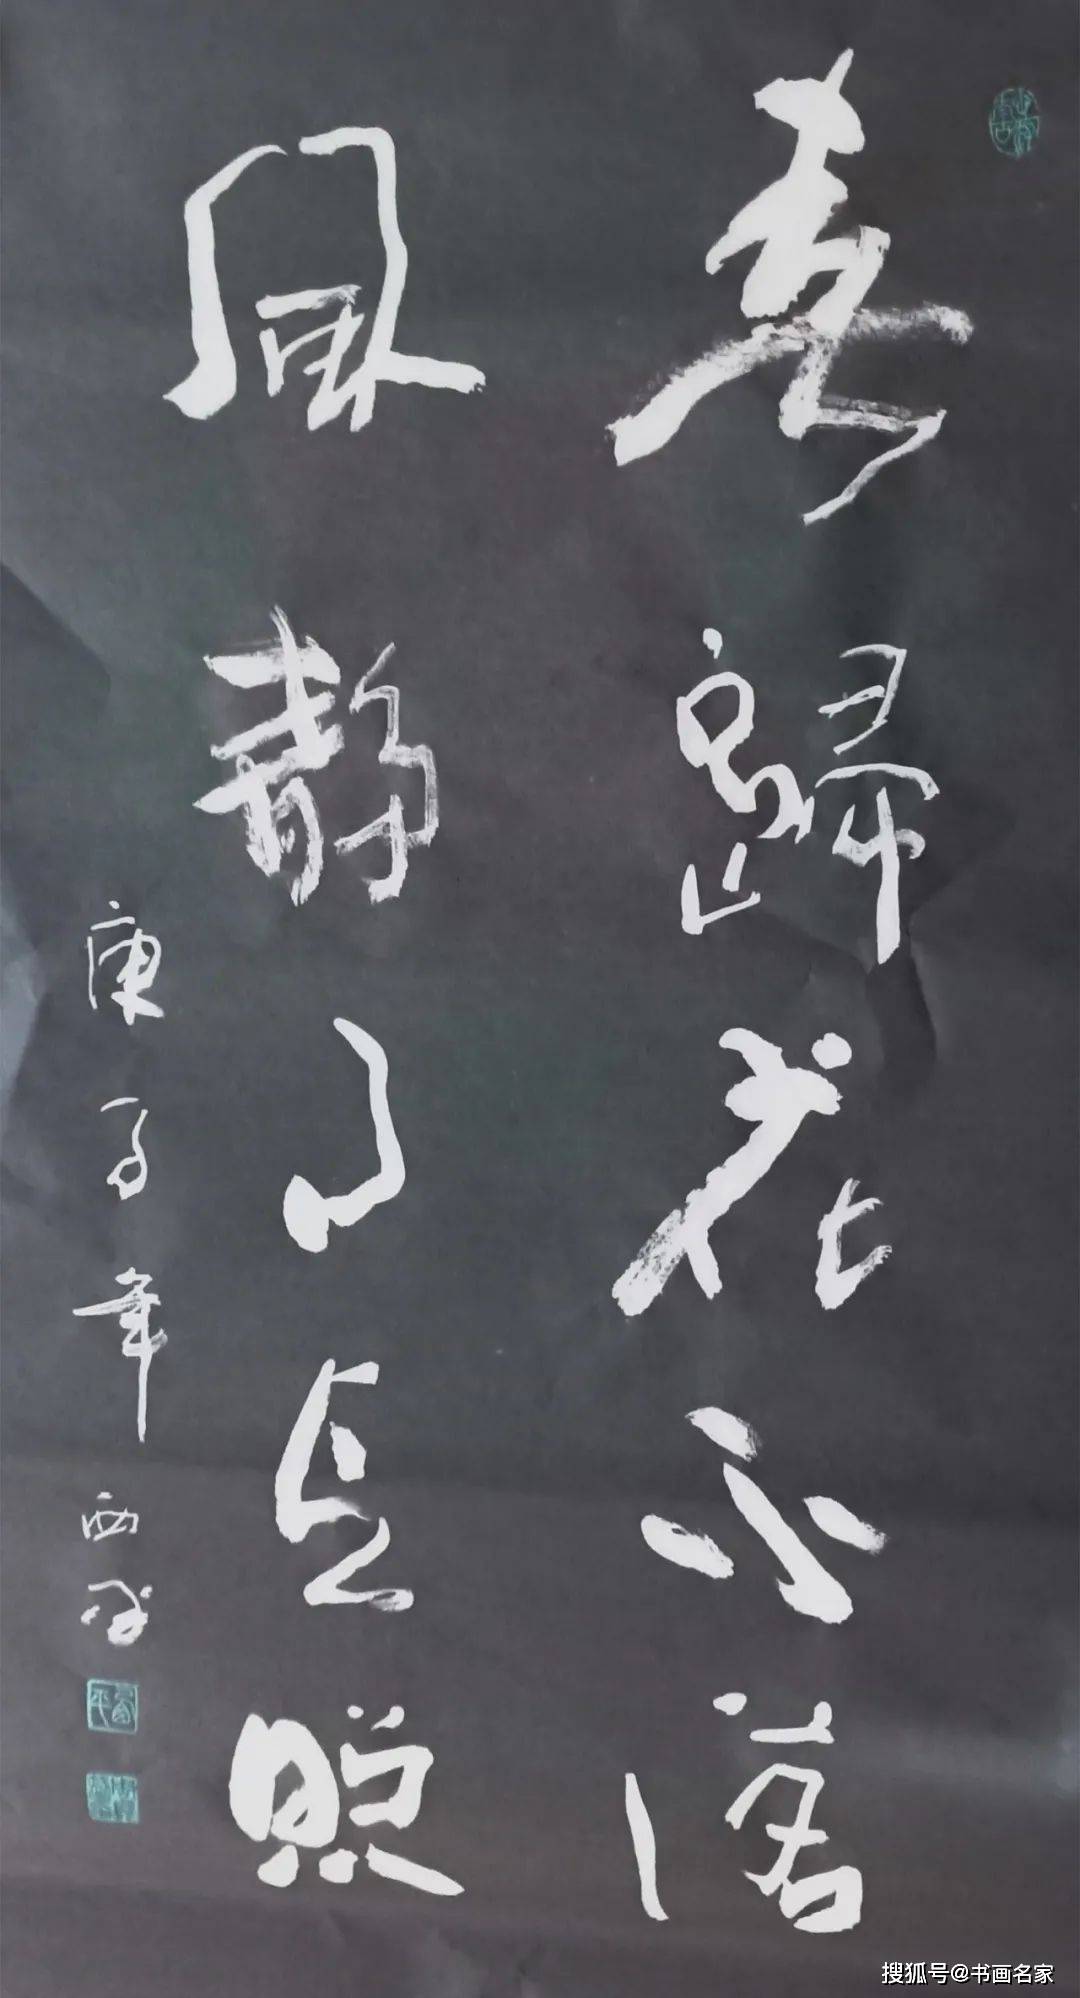 春歸花不落
風静月長照
庚子年西平
搜狐号@书画名家